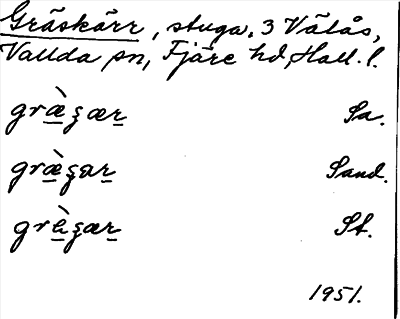 Gräskärr, stuga, 3 Välås,
Vallda sn, Fjäre hd, Hall. l.
græ̠̀ʂær̠ Sa.
græ̠̀ʂar̠ Sand.
grà̠ʂær̠ St.
1951.